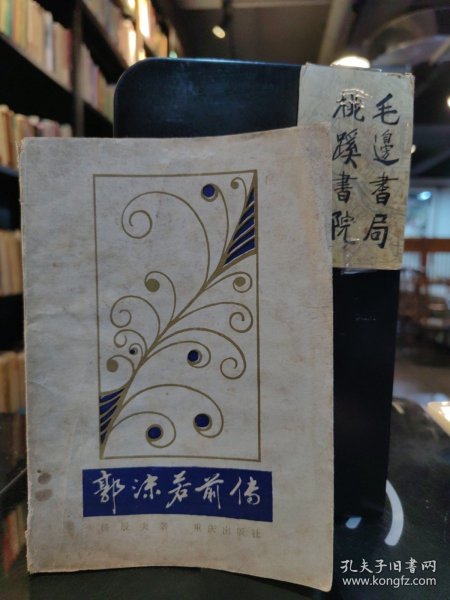 毛邊書局
桃蹊書院
郭沫若前傳
杨辰夫著 重庆出版社
孔夫子旧书网
www.kongfz.com